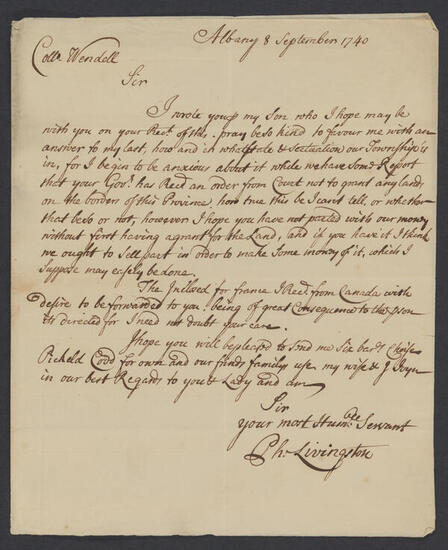 Albany 8 September 1740
Coll.o Wendell
Sir
I wrote you p my Son who I hope may be
with you on your Rec.t of this. pray be so kind to favour me with an
answer to my last, how and in what state & scituation our Township is
in, for I begin to be anxious about it while we have Some Report
that your Gov.r has Rec.d an order from Court not to grant any land,
on the borders of this Province, how true this be I can't tell, or whether
that be so or not, however I hope you have not parted with our money
without first having a grant for the Land, and if you have it I think
we ought to Sell part in order to make Some money of it, which I
Suppose may easely be done.
The Inclosed for france I Rec.d from Canada with
desire to be forwarded to you: being of great Consequence to the pson
its directed for I need not doubt your care.
I hope you will be pleased to send me Six bar.s
Pickeld Codd for own and our friends family use my wife & I Joyn
in our best Regards to you & Lady and am
Sir
your most Hum.ble Servant
Ph: Livingston